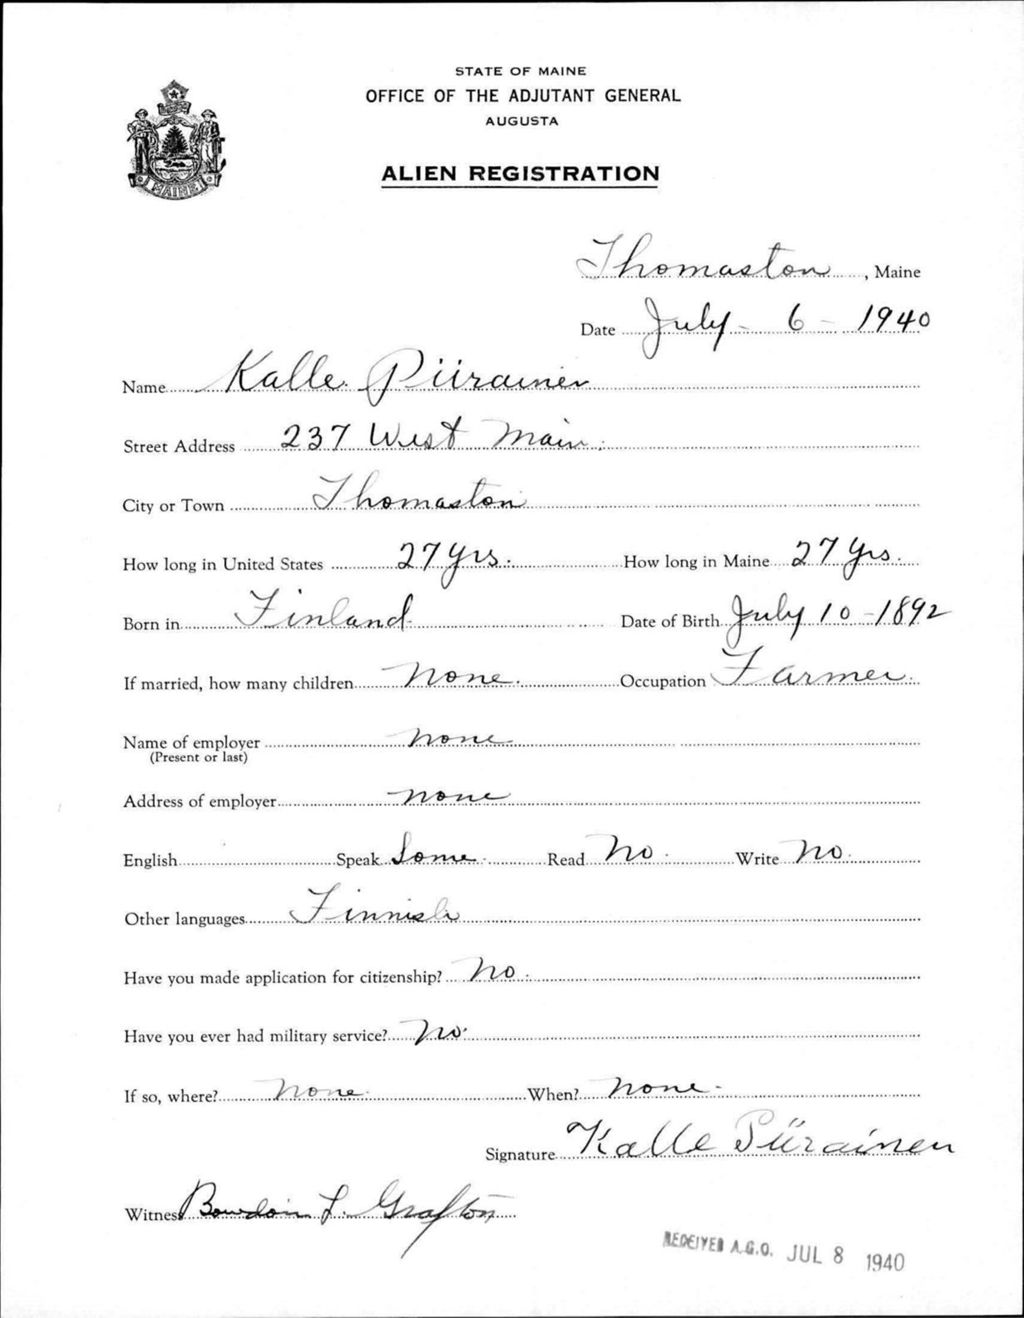 STATE OF MAINE
OFFICE OF THE ADJUTANT GENERAL
AUGUSTA
ALIEN REGISTRATION
MAINE
Thomaston, Maine
Date July - 6 - 1940
Name Kalle Piirainen
Street Address 237 West Main
City or Town Thomaston
How long in United States 27 yrs. How long in Maine 27 yrs.
Born in Finland Date of Birth July 10 - 1892
If married, how many children None. Occupation Farmer
Name of employer none
(Present or last)
Address of employer none
English Speak Some Read No Write No
Other languages Finnish
Have you made application for citizenship? No
Have you ever had military service? No
If so, where? None When? None
Signature Kalle Piirainen
Witness Bowdoin L. Grafton
RECEIVED A.G.O. JUL 8 1940